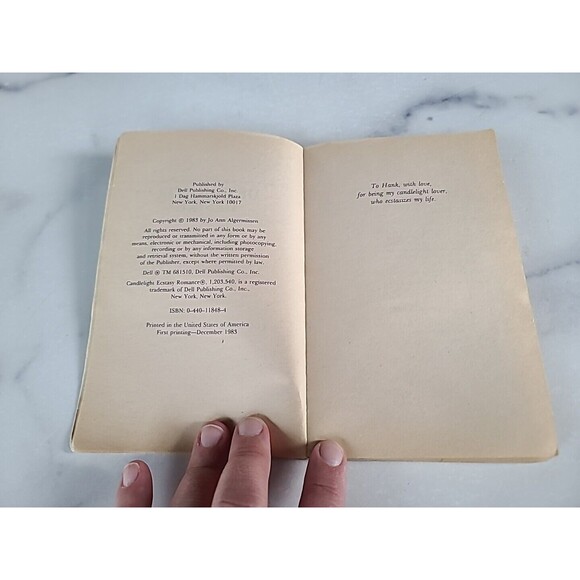 Published by
Dell Publishing Co., Inc.
1 Dag Hammarskjold Plaza
New York, New York 10017
Copyright © 1983 by Jo Ann Algermissen
All rights reserved. No part of this book may be
reproduced or transmitted in any form or by any
means, electronic or mechanical, including photocopying,
recording or by any information storage
and retrieval system, without the written permission
of the Publisher, except where permitted by law.
Dell ® TM 681510, Dell Publishing Co., Inc.
Candlelight Ecstasy Romance®, 1,203,540, is a registered
trademark of Dell Publishing Co., Inc.,
New York, New York.
ISBN: 0-440-11848-4
Printed in the United States of America
First printing—December 1983
To Hank, with love,
for being my candlelight lover,
who ecstasizes my life.